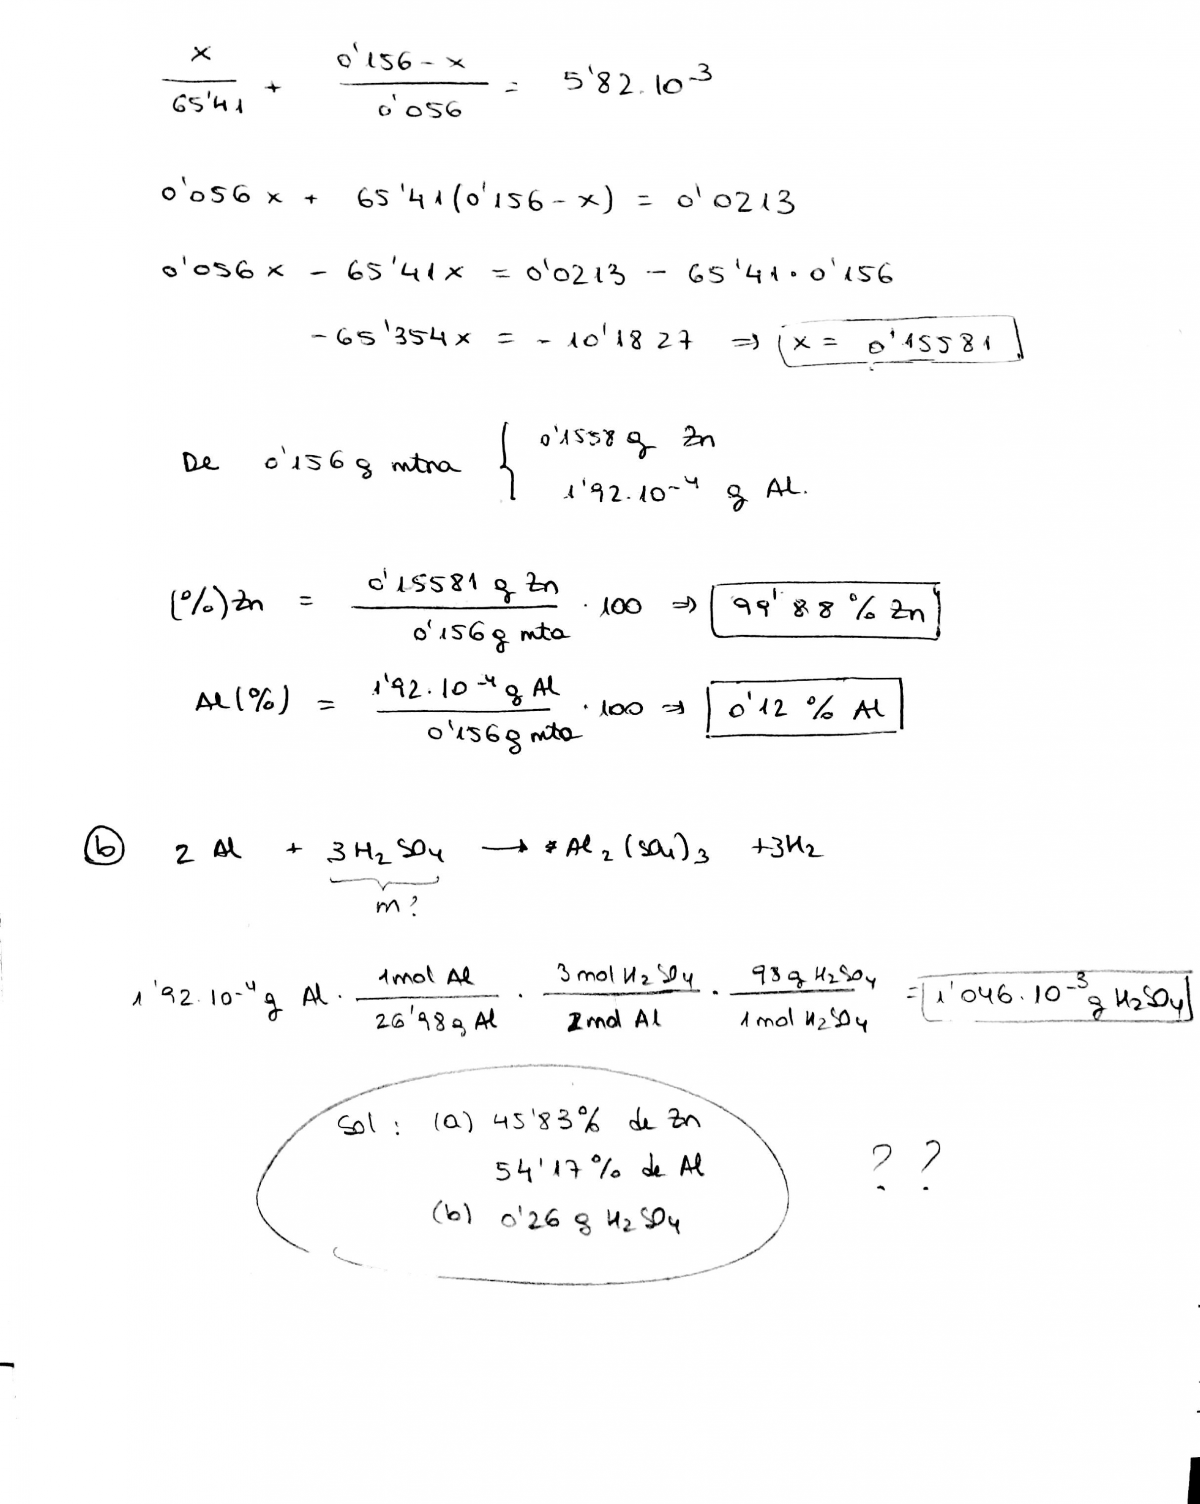 x/65'41 + (0'156 - x)/0'056 = 5'82.10^-3
0'056 x + 65'41(0'156 - x) = 0'0213
0'056 x - 65'41 x = 0'0213 - 65'41 · 0'156
-65'354 x = -10'1827 ⇒ x = 0'15581
De 0'156 g mtra { 0'1558 g Zn
1'92.10^-4 g Al.
(%) Zn = 0'15581 g Zn / 0'156 g mta · 100 ⇒ 99'88 % Zn
Al (%) = 1'92.10^-4 g Al / 0'156 g mta · 100 ⇒ 0'12 % Al
(b) 2 Al + 3 H2SO4 → Al2(SO4)3 + 3H2
m?
1'92.10^-4 g Al · 1 mol Al / 26'98 g Al · 3 mol H2SO4 / 2 mol Al · 98 g H2SO4 / 1 mol H2SO4 = 1'046.10^-3 g H2SO4
Sol : (a) 45'83% de Zn
54'17% de Al
(b) 0'26 g H2SO4
? ?